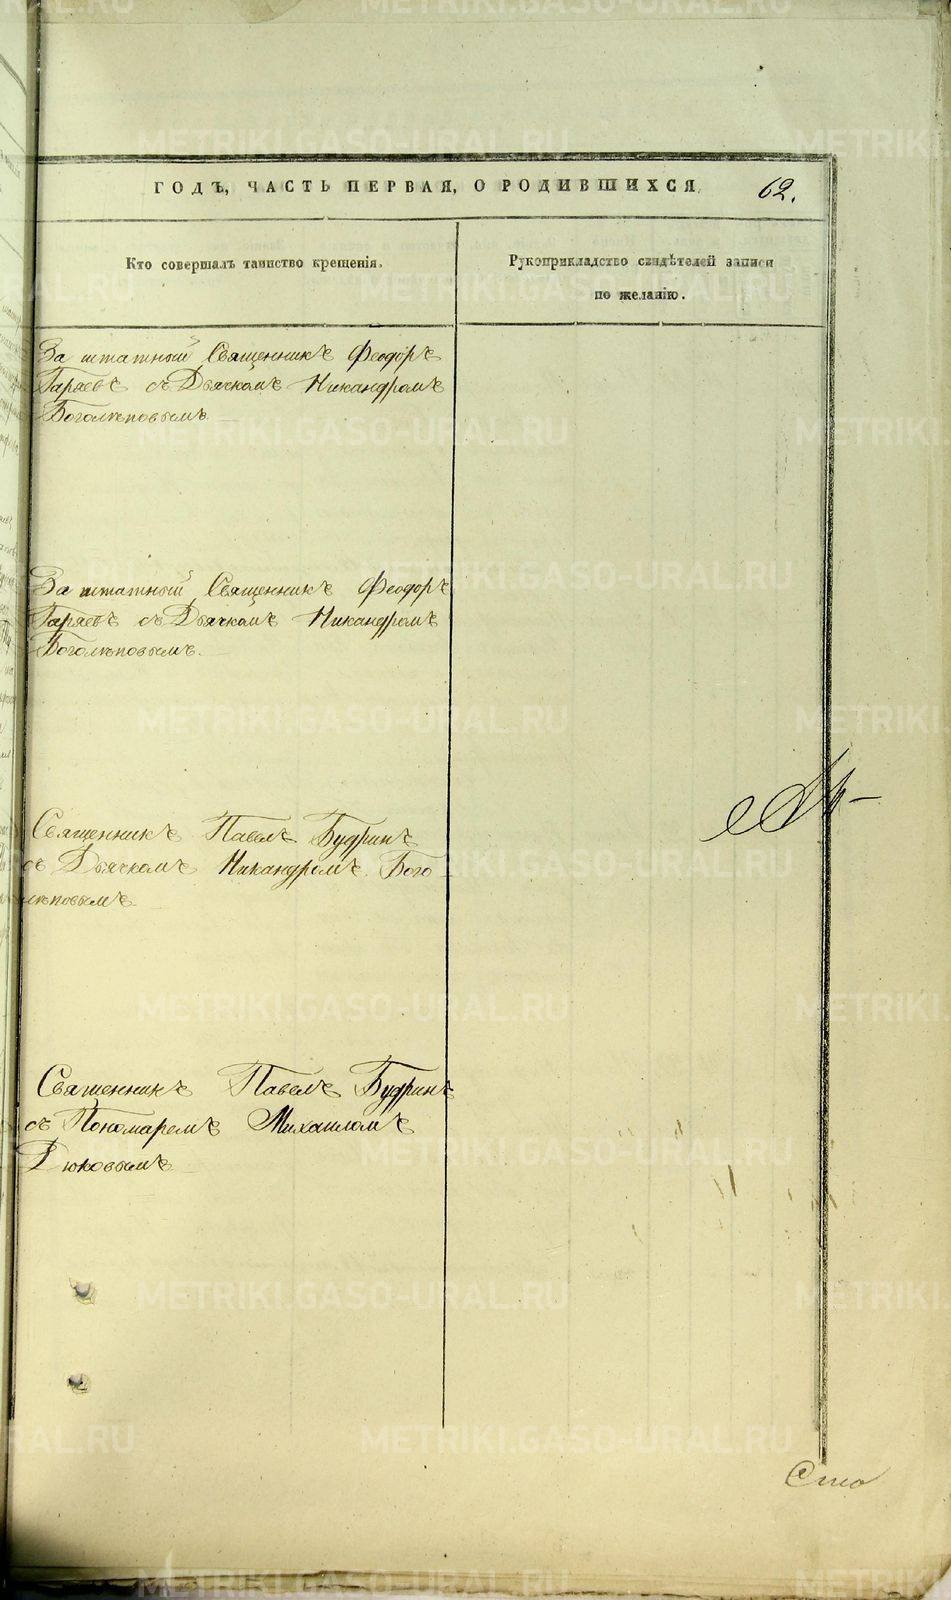 ГОДЪ, ЧАСТЬ ПЕРВАЯ, О РОДИВШИХСЯ 62.
Кто совершалъ таинство крещенія.
Рукоприкладство свидѣтелей записи
по желанію.
За штатный Священникъ Феодоръ
Гаряевъ съ Дьячкомъ Никандромъ
Боголѣповымъ.
За штатный Священникъ Феодоръ
Гаряевъ съ Дьячкомъ Никандромъ
Боголѣповымъ.
Священникъ Павелъ Будринъ
съ Дьячкомъ Никандромъ Бого
лѣповымъ
Священникъ Павелъ Будринъ
съ Пономаремъ Михаиломъ
Дюковымъ
METRIKI.GASO-URAL.RU